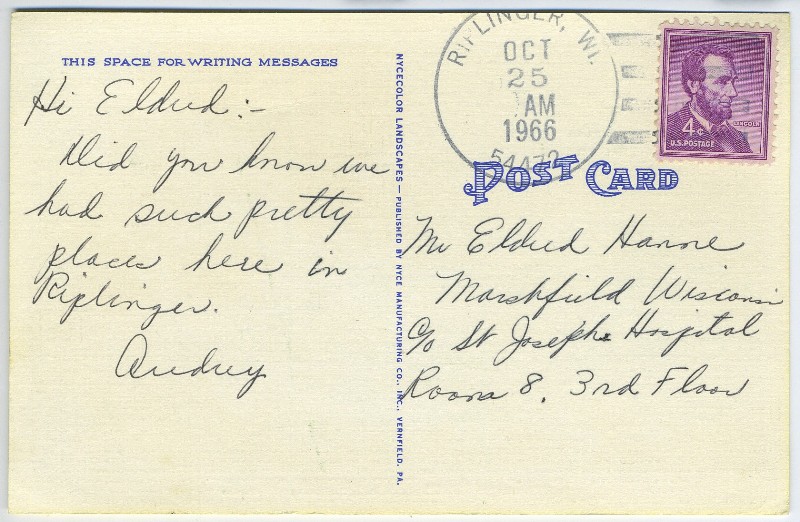 THIS SPACE FOR WRITING MESSAGES
Hi Eldred:-
Did you know we
had such pretty
places here in
Riplinger.
Audrey
NYCECOLOR LANDSCAPES — PUBLISHED BY NYCE MANUFACTURING CO., INC., VERNFIELD, PA.
RIPLINGER, WI.
OCT
25
AM
1966
LINCOLN
4¢
U.S. POSTAGE
POST CARD
Mr Eldred Hanne
Marshfield Wisconsin
C/o St Josephs Hospital
Room 8, 3rd Floor